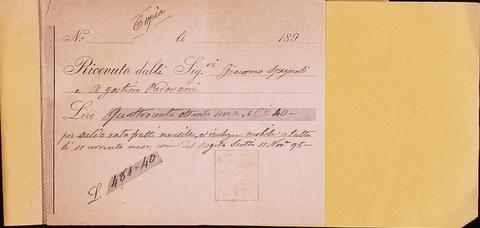 Copia
No. li 189
Ricevuto dalli Sig.ri Giacomo Spagnoli
e Agostino Padovani
Lire Quattrocento ottanta una, e Ci 40 –
per saldo rata frutti mensile, mobili a tutto
li 10 corrente mese, come del Nov. 95 –
L. 481 - 40